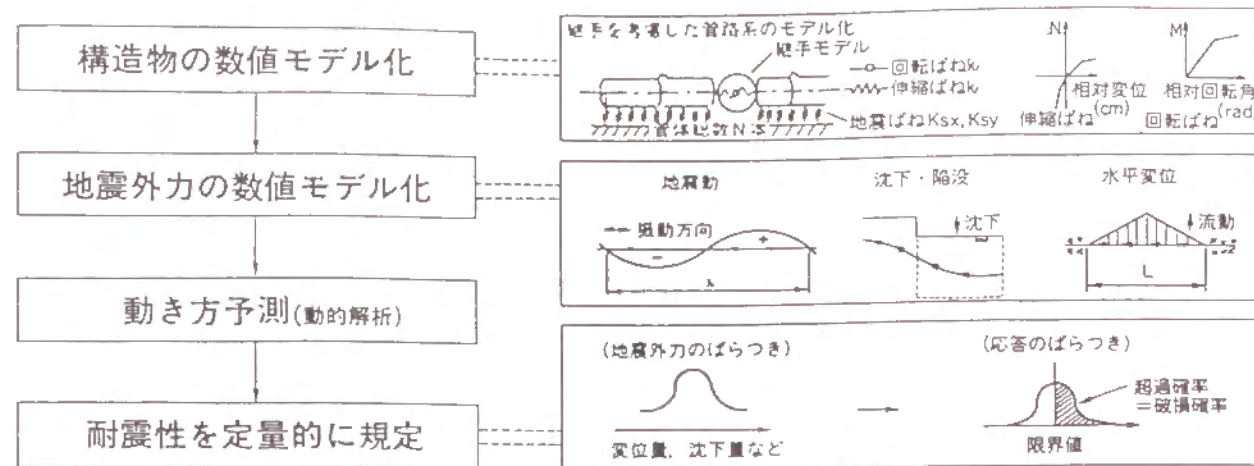 構造物の数値モデル化
地震外力の数値モデル化
動き方予測(動的解析)
耐震性を定量的に規定
継手を考慮した管路系のモデル化
継手モデル
回転ばねkr
伸縮ばねkj
地震ばねKsx, Ksy
管体総数N本
N
相対変位
(cm)
伸縮ばね
M
相対回転角
(rad)
回転ばね
地震動
震動方向
−
+
λ
沈下・陥没
沈下
水平変位
流動
L
(地震外力のばらつき)
変位量, 沈下量など
(応答のばらつき)
超過確率
=破損確率
限界値